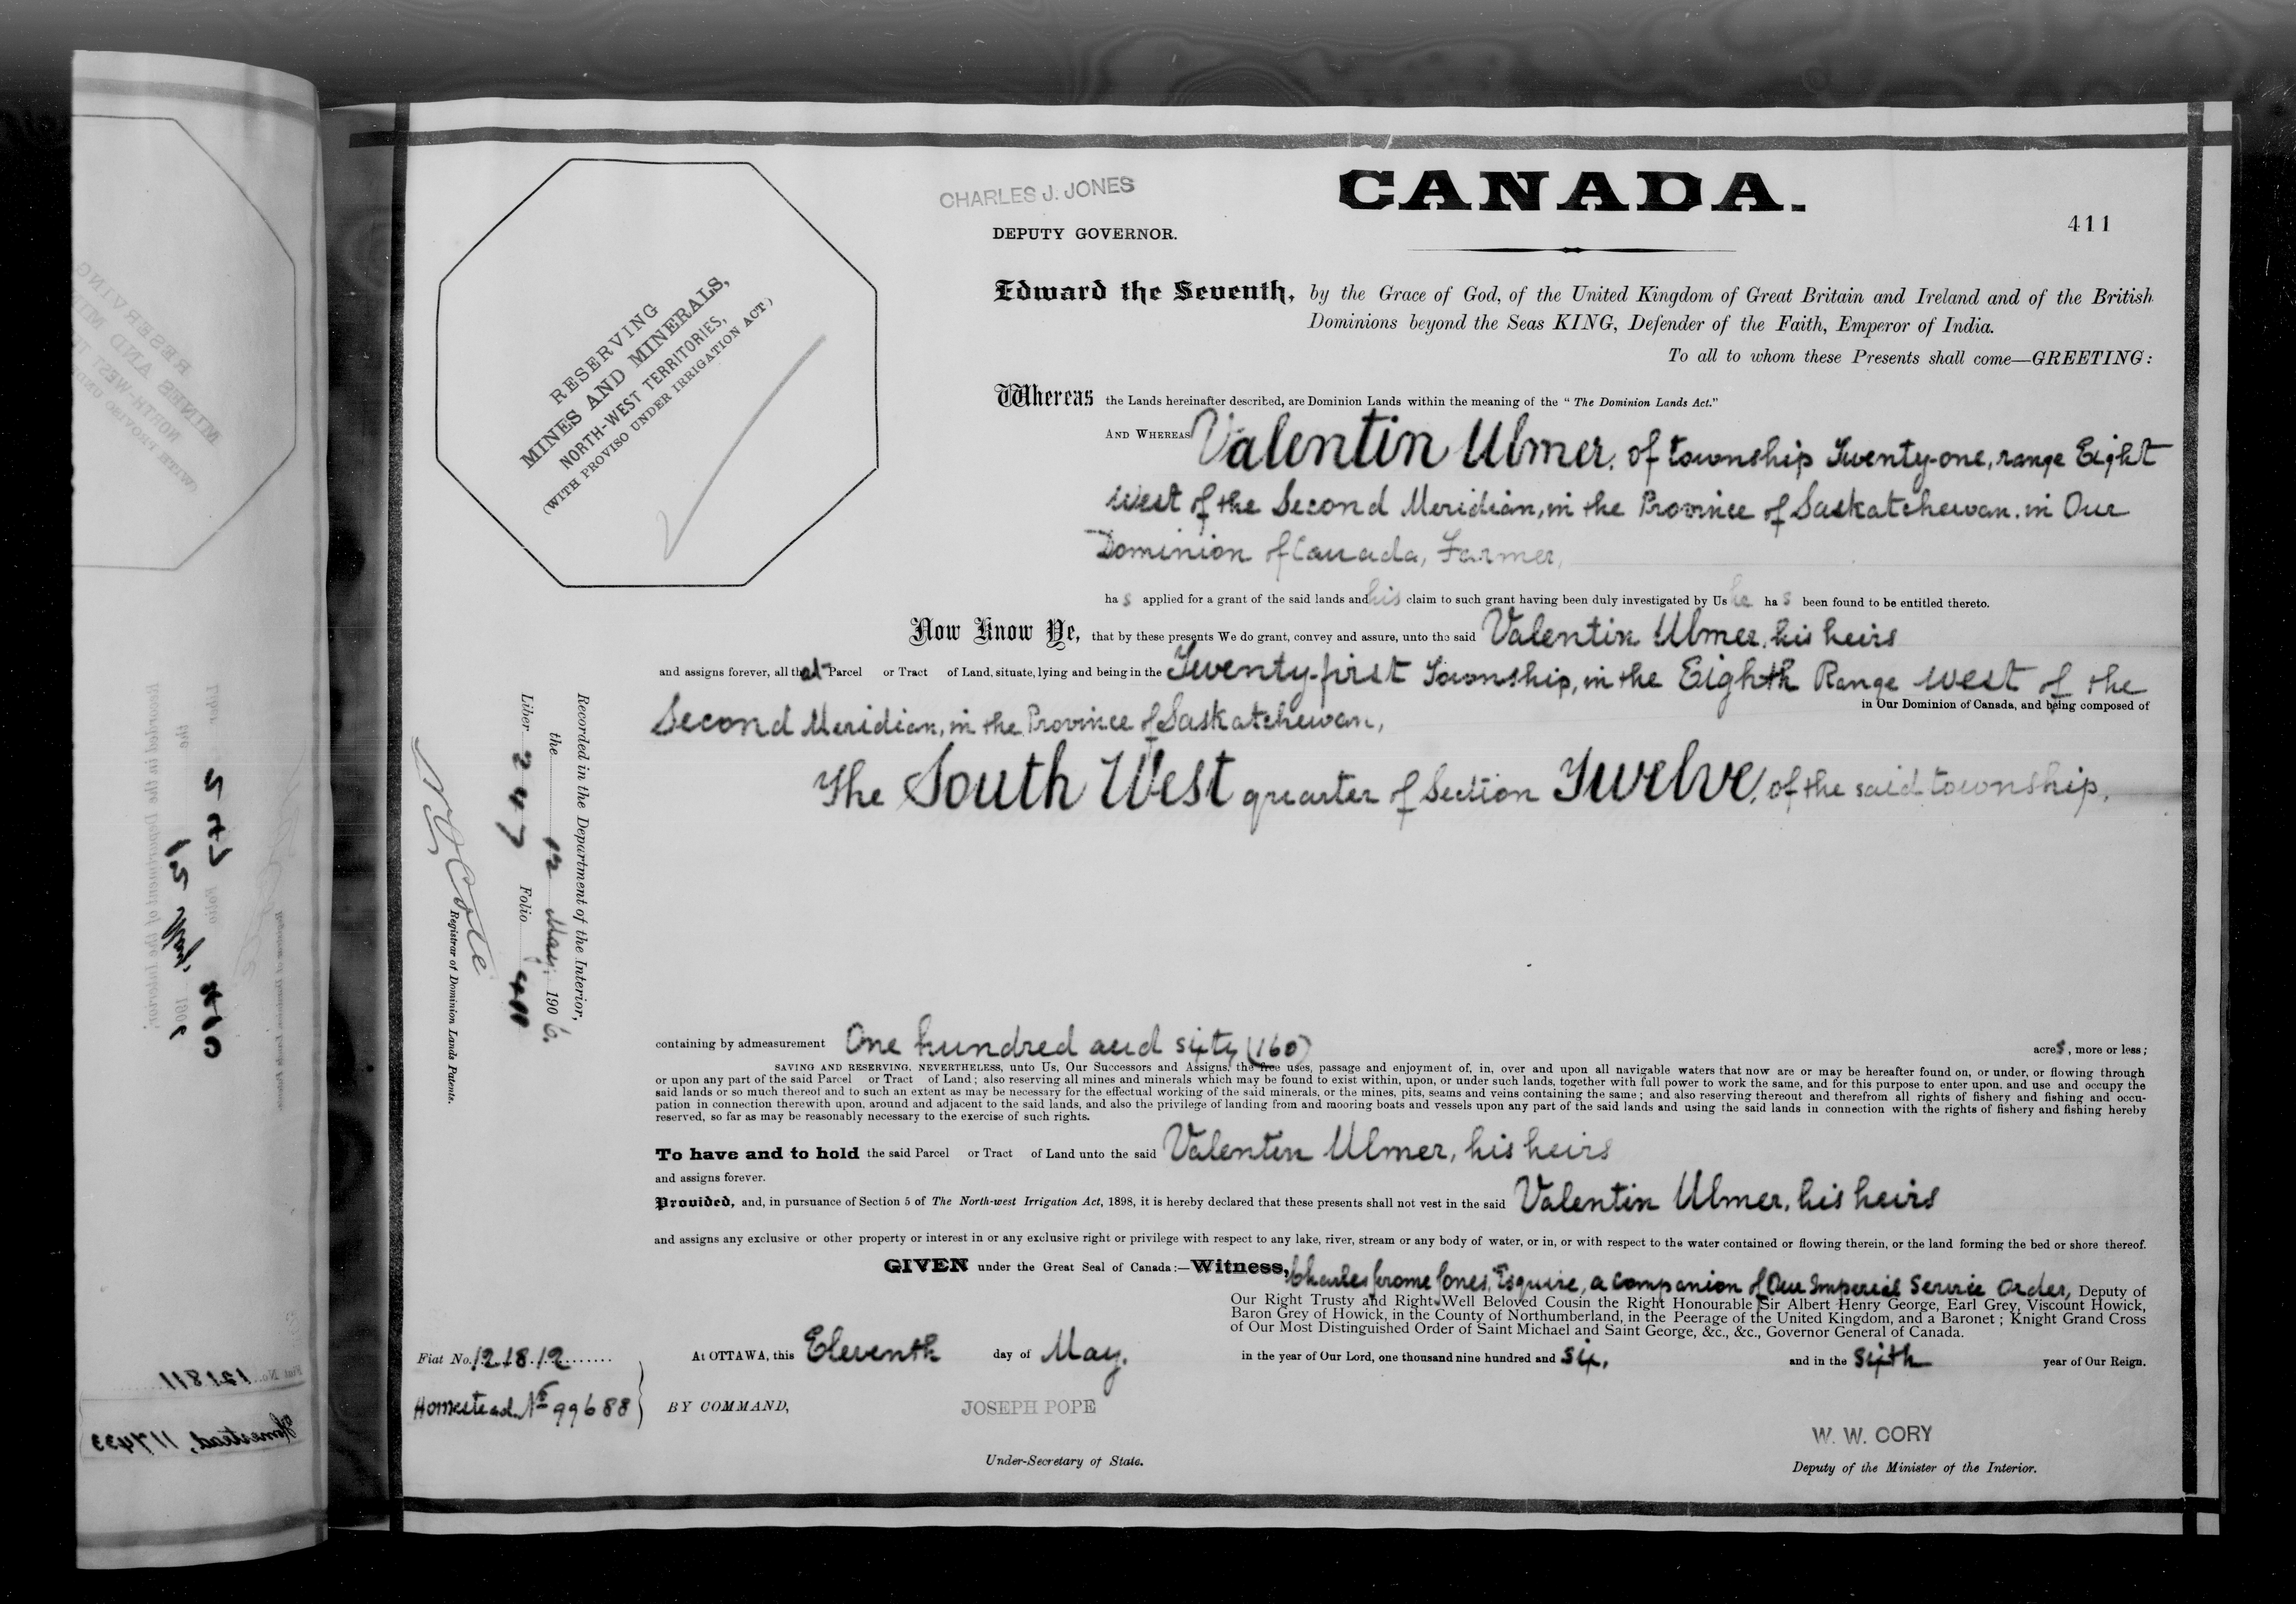 CHARLES J. JONES
CANADA.
DEPUTY GOVERNOR.
411
RESERVING
MINES AND MINERALS,
NORTH-WEST TERRITORIES,
(WITH PROVISO UNDER IRRIGATION ACT)
Edward the Seventh, by the Grace of God, of the United Kingdom of Great Britain and Ireland and of the British
Dominions beyond the Seas KING, Defender of the Faith, Emperor of India.
To all to whom these Presents shall come—GREETING:
Whereas the Lands hereinafter described, are Dominion Lands within the meaning of the "The Dominion Lands Act."
AND WHEREAS Valentin Ulmer, of township Twenty-one, range Eight
West of the Second Meridian, in the Province of Saskatchewan, in Our
Dominion of Canada, Farmer,
has applied for a grant of the said lands and his claim to such grant having been duly investigated by Us he has been found to be entitled thereto.
Now Know Ye, that by these presents We do grant, convey and assure, unto the said Valentin Ulmer, his heirs
and assigns forever, all that Parcel or Tract of Land, situate, lying and being in the Twenty-first Township, in the Eighth Range West of the
Second Meridian, in the Province of Saskatchewan, in Our Dominion of Canada, and being composed of
The South West quarter of Section Twelve, of the said township,
Recorded in the Department of the Interior,
the 12 May, 1906.
Liber 247 Folio 411
Registrar of Dominion Lands Patents.
containing by admeasurement One hundred and sixty (160) acres, more or less;
SAVING AND RESERVING, NEVERTHELESS, unto Us, Our Successors and Assigns, the free uses, passage and enjoyment of, in, over and upon all navigable waters that now are or may be hereafter found on, or under, or flowing through
or upon any part of the said Parcel or Tract of Land; also reserving all mines and minerals which may be found to exist within, upon, or under such lands, together with full power to work the same, and for this purpose to enter upon, and use and occupy the
said lands or so much thereof and to such an extent as may be necessary for the effectual working of the said minerals, or the mines, pits, seams and veins containing the same; and also reserving thereout and therefrom all rights of fishery and fishing and occu-
pation in connection therewith upon, around and adjacent to the said lands, and also the privilege of landing from and mooring boats and vessels upon any part of the said lands and using the said lands in connection with the rights of fishery and fishing hereby
reserved, so far as may be reasonably necessary to the exercise of such rights.
To have and to hold the said Parcel or Tract of Land unto the said Valentin Ulmer, his heirs
and assigns forever.
Provided, and, in pursuance of Section 5 of The North-west Irrigation Act, 1898, it is hereby declared that these presents shall not vest in the said Valentin Ulmer, his heirs
and assigns any exclusive or other property or interest in or any exclusive right or privilege with respect to any lake, river, stream or any body of water, or in, or with respect to the water contained or flowing therein, or the land forming the bed or shore thereof.
GIVEN under the Great Seal of Canada:—Witness, Charles Jerome Jones, Esquire, a companion of Our Imperial Service Order, Deputy of
Our Right Trusty and Right Well Beloved Cousin the Right Honourable Sir Albert Henry George, Earl Grey, Viscount Howick,
Baron Grey of Howick, in the County of Northumberland, in the Peerage of the United Kingdom, and a Baronet; Knight Grand Cross
of Our Most Distinguished Order of Saint Michael and Saint George, &c., &c., Governor General of Canada.
At OTTAWA, this Eleventh day of May, in the year of Our Lord, one thousand nine hundred and six, and in the sixth year of Our Reign.
Fiat No. 121812
Homestead No 99688
BY COMMAND,
JOSEPH POPE
Under-Secretary of State.
W. W. CORY
Deputy of the Minister of the Interior.